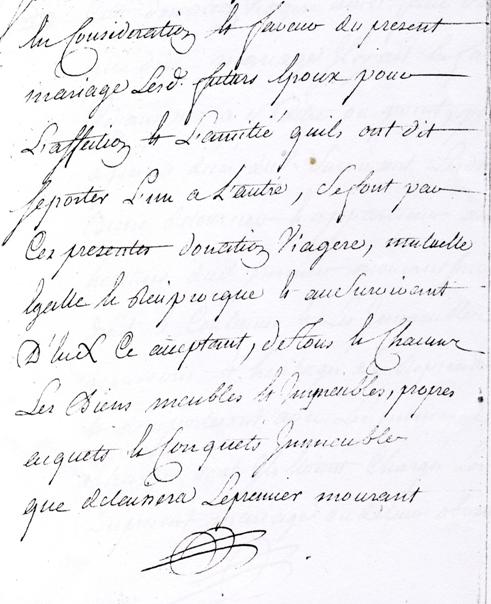 En Consideration et faveur du present
mariage Lesd. futurs Epoux pour
L'affection et L'amitié quils ont dit
se porter L'un a L'autre, se font par
Ces presentes donation Viagere, mutuelle
Egalle et Reciprocque et au Survivant
D'Eux Ce acceptant, de Tous et Chacuns
Les Biens meubles et Immeubles, propres
acquets et Conquets Immeubles
que delaissera Le premier mourant